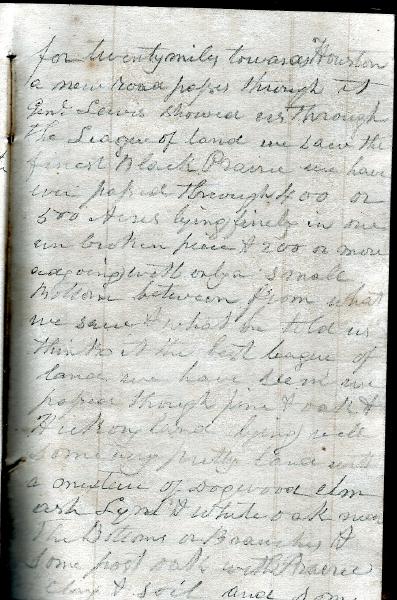 for twenty miles towards Houston
a new road passes through it
Genl Lewis showed us through
the League of land we saw the
finest Black Prairie we have
ever passed through 400 or
500 Acres lying finely in one
un broken piece & 200 or more
adgoing with only a small
Bottom between from what
we saw & what he told us
think it the best league of
land we have seen we
passed though pine & oak &
Hickory land lying well
some very pretty land with
a mixture of Dogwood elm
ash Lynn & white oak near
The Bottoms or Branches &
some post oak with Prairie
Clay & soil and some